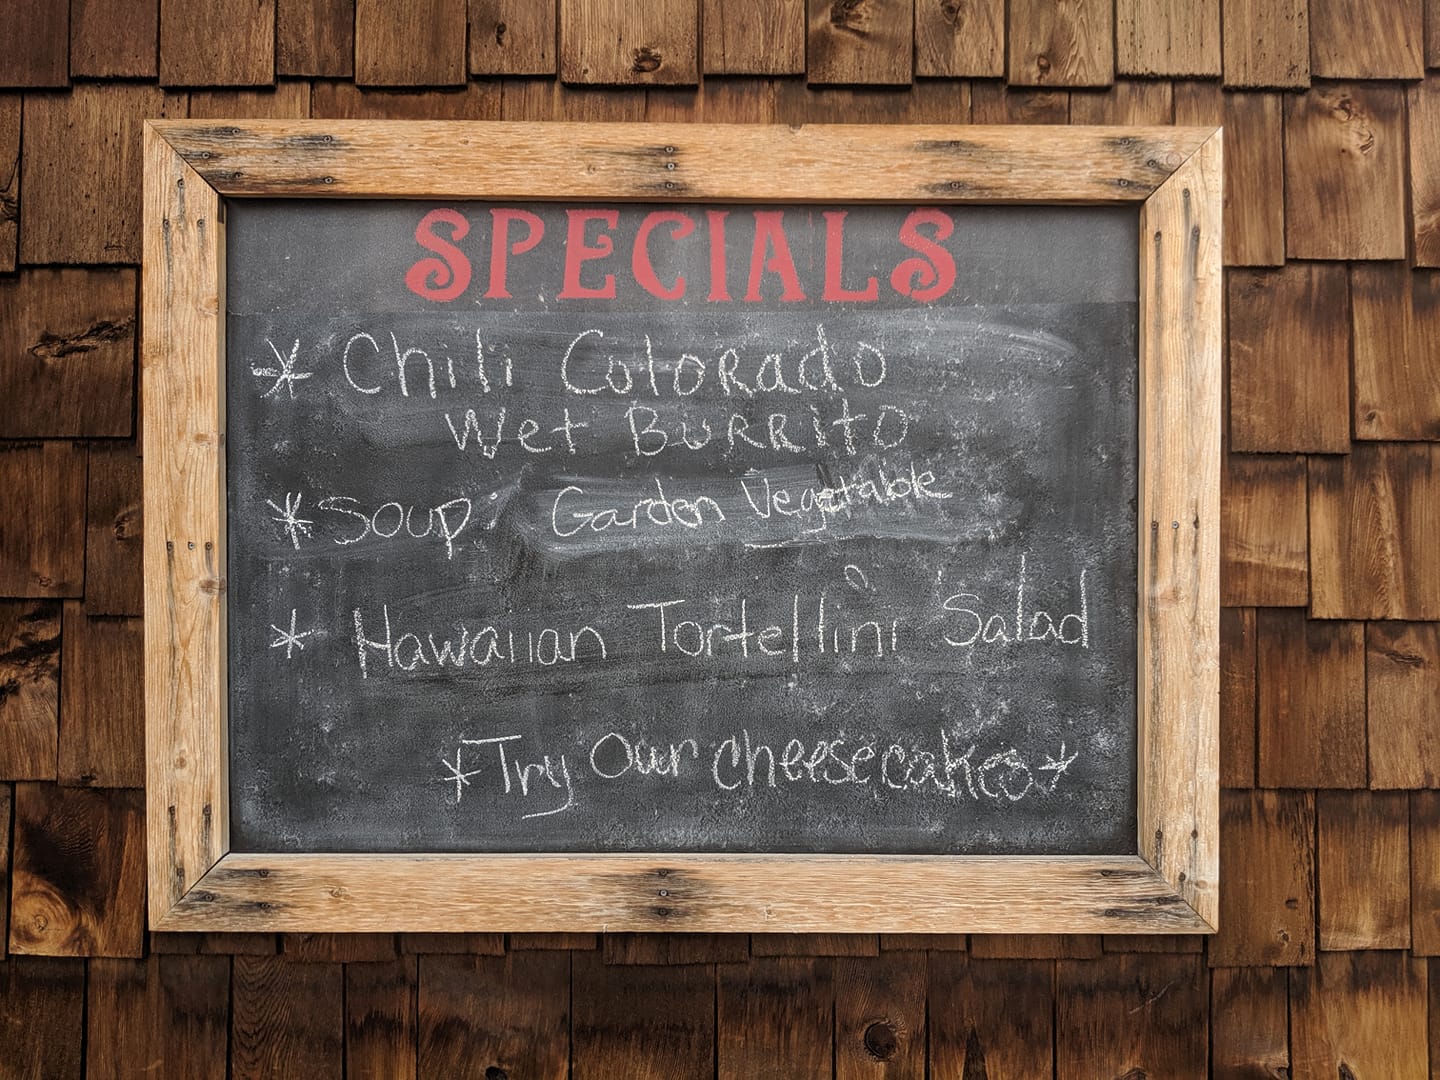 SPECIALS
* Chili Colorado
Wet Burrito
* Soup: Garden Vegetable
* Hawaiian Tortellini Salad
*Try Our Cheesecakes*